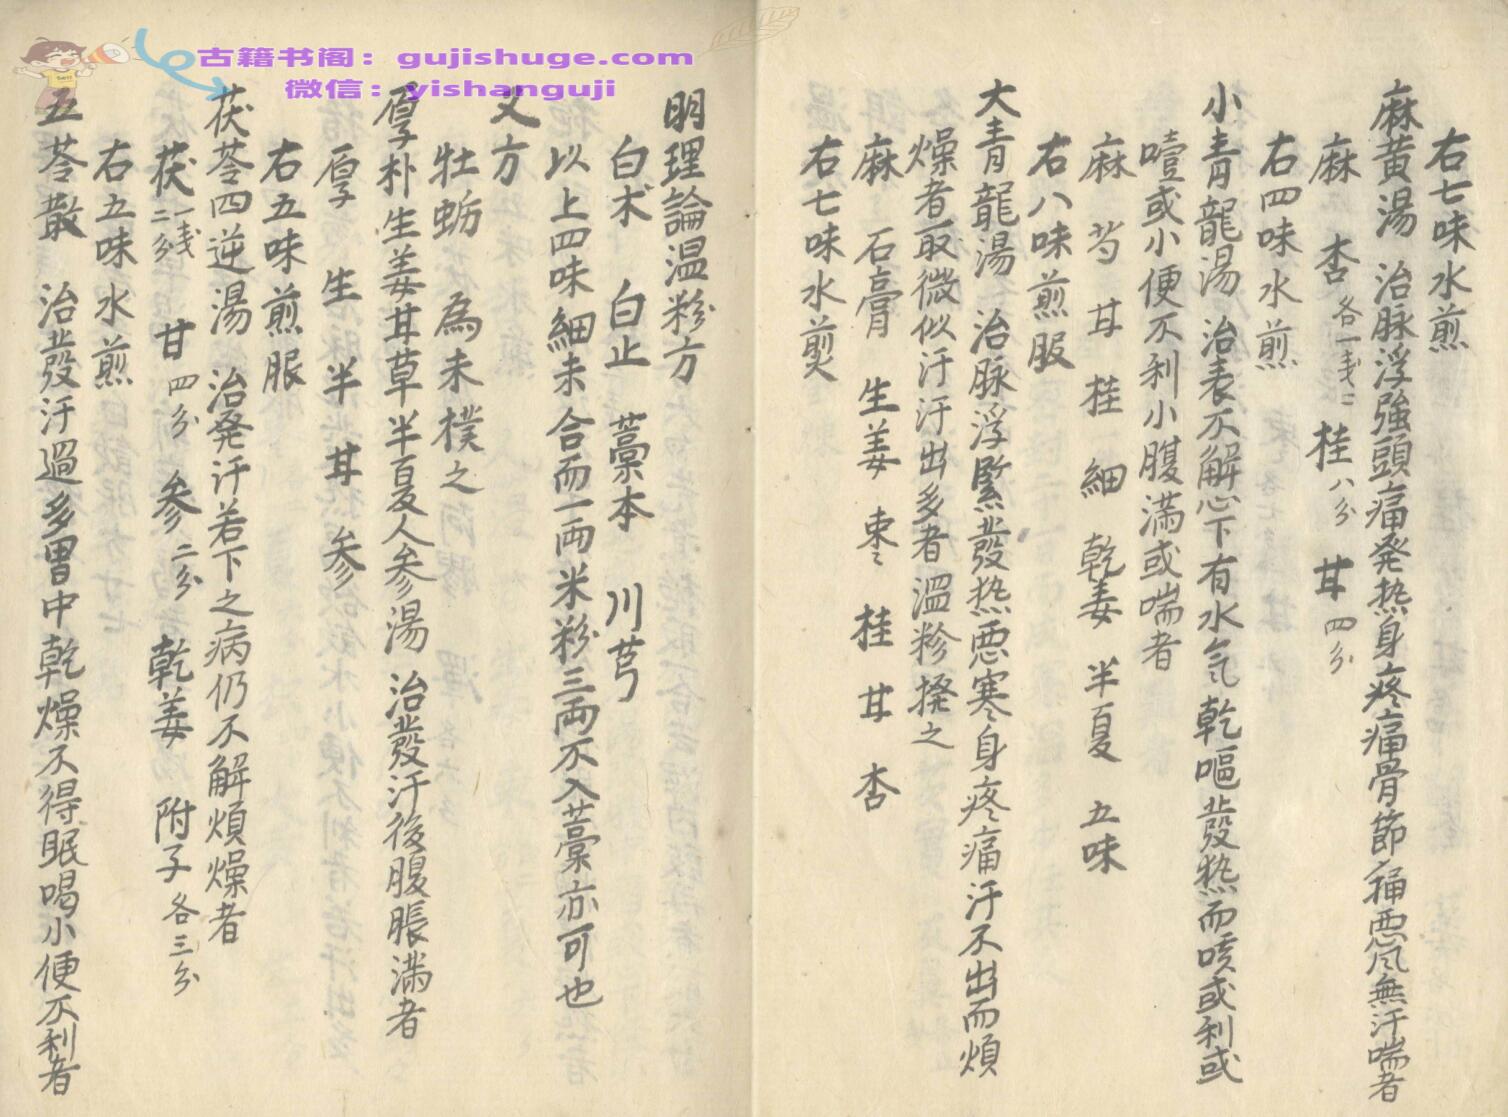 古籍书阁：gujishuge.com
微信：yishanguji
右七味水煎
麻黄湯 治脉浮強頭痛発热身疼痛骨節痛悪风無汗喘者
麻 杏各一戋二 桂八分 甘四分
右四味水煎
小青龍湯 治表不解心下有水气乾嘔發热而咳或利或
噎或小便不利小腹满或喘者
麻 芍 甘 桂 細 乾姜 半夏 五味
右八味煎服
大青龍湯 治脉浮緊發热悪寒身疼痛汗不出而煩
燥者取微似汗汗出多者温粉撲之
麻 石膏 生姜 枣 桂 甘 杏
右七味水煎
明理論温粉方
白朮 白止 藁本 川芎
以上四味細末合而一両米粉三両不入藁亦可也
又方
牡蛎 為末撲之
厚朴生姜甘草半夏人参湯 治發汗後腹脹满者
厚 生 半 甘 参
右五味煎服
茯苓四逆湯 治発汗若下之病仍不解煩燥者
茯一戋二分 甘四分 参二分 乾姜 附子各三分
右五味水煎
五苓散 治發汗過多胃中乾燥不得眠喝小便不利者